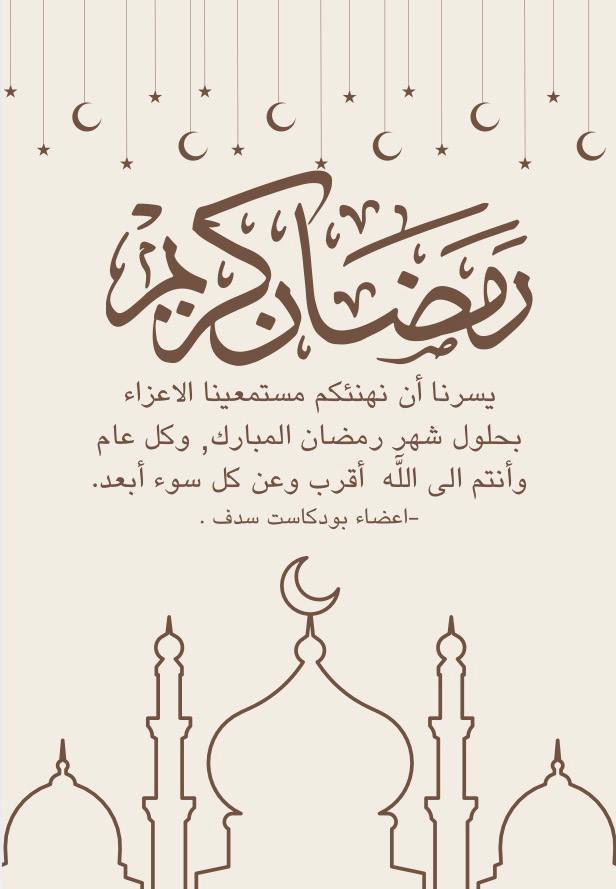 رمضان كريم
يسرنا أن نهنئكم مستمعينا الاعزاء
بحلول شهر رمضان المبارك, وكل عام
وأنتم الى اللَّه أقرب وعن كل سوء أبعد.
-اعضاء بودكاست سدف .